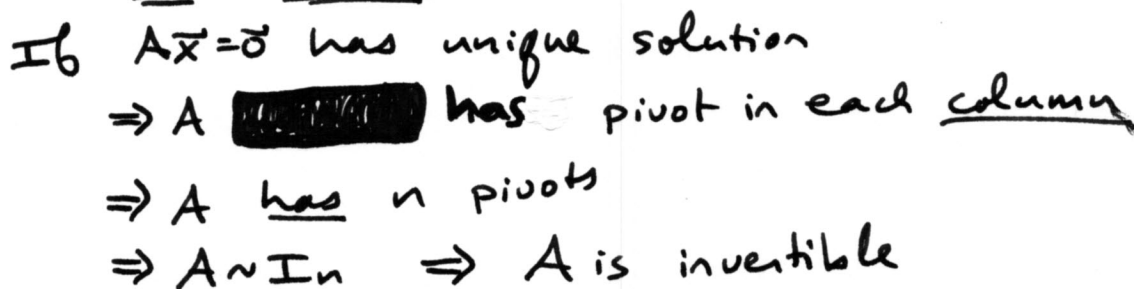 If Ax⃗=0⃗ has unique solution
⇒ A has pivot in each column
⇒ A has n pivots
⇒ A ~ In ⇒ A is invertible